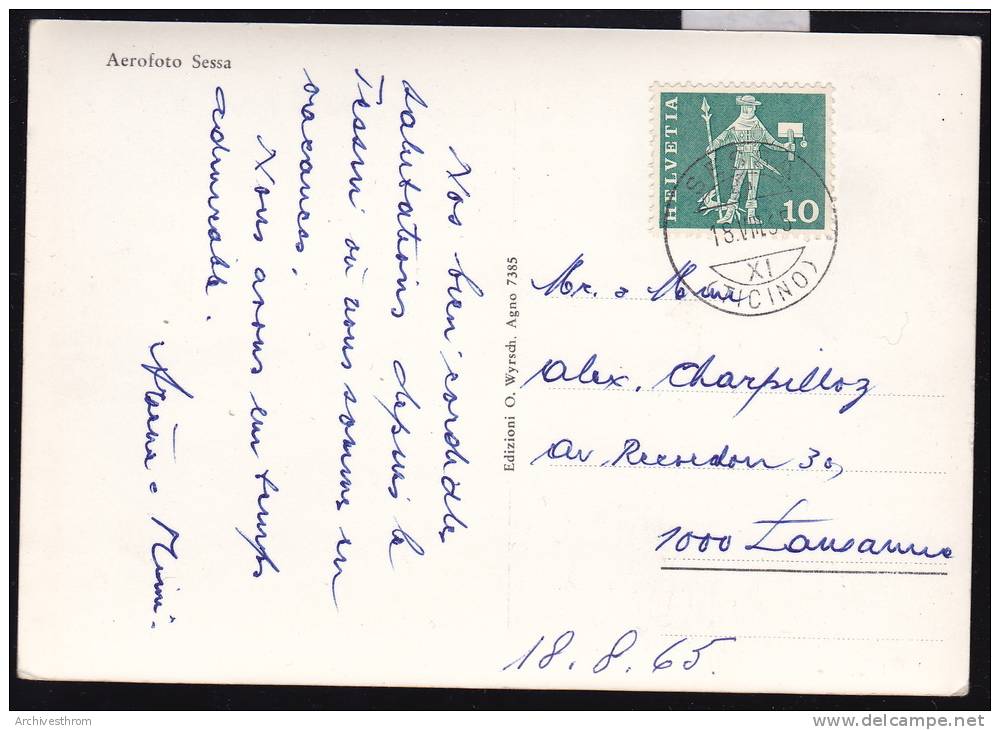 Aerofoto Sessa
Nos bien cordiales
salutations depuis le
Tessin où nous sommes en
vacances.
Nous avons un temps
admirable.
Mimi.
Edizioni O. Wyrsch. Agno 7385
HELVETIA
10
18.VIII.65
XI
(TICINO)
Mr. & Mme
Alex. Charpilloz
Av Recordon 30
1000 Lausanne
18.8.65.
Archivesthrom
www.delcampe.net